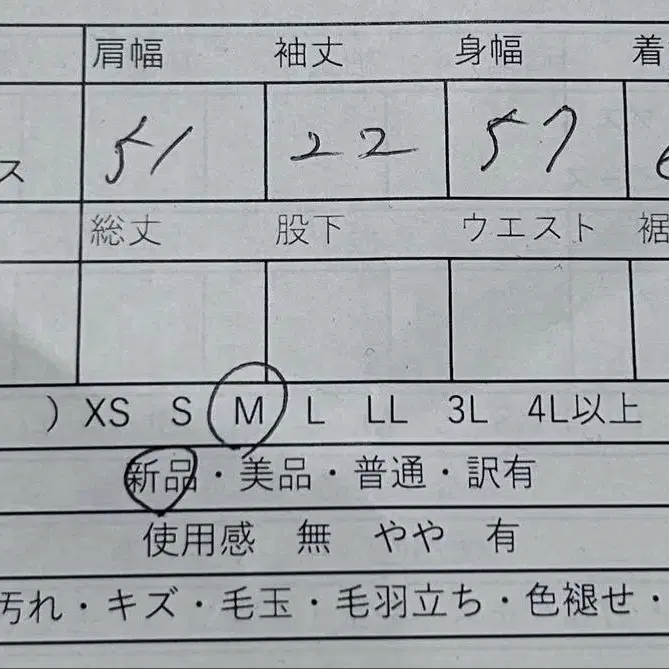 肩幅 袖丈 身幅 着
ス 51 22 57
総丈 股下 ウエスト 裾
) XS S M L LL 3L 4L以上
新品・美品・普通・訳有
使用感 無 やや 有
汚れ・キズ・毛玉・毛羽立ち・色褪せ・